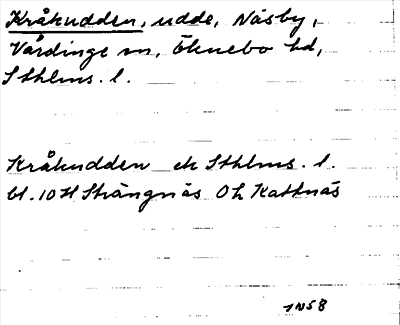 Kråkudden, udde, Näsby,
Vårdinge sn, Öknebo hd,
Sthlms. l.
Kråkudden ek Sthlms. l.
bl. 10H Strängnäs Oh Kattnäs
1N58